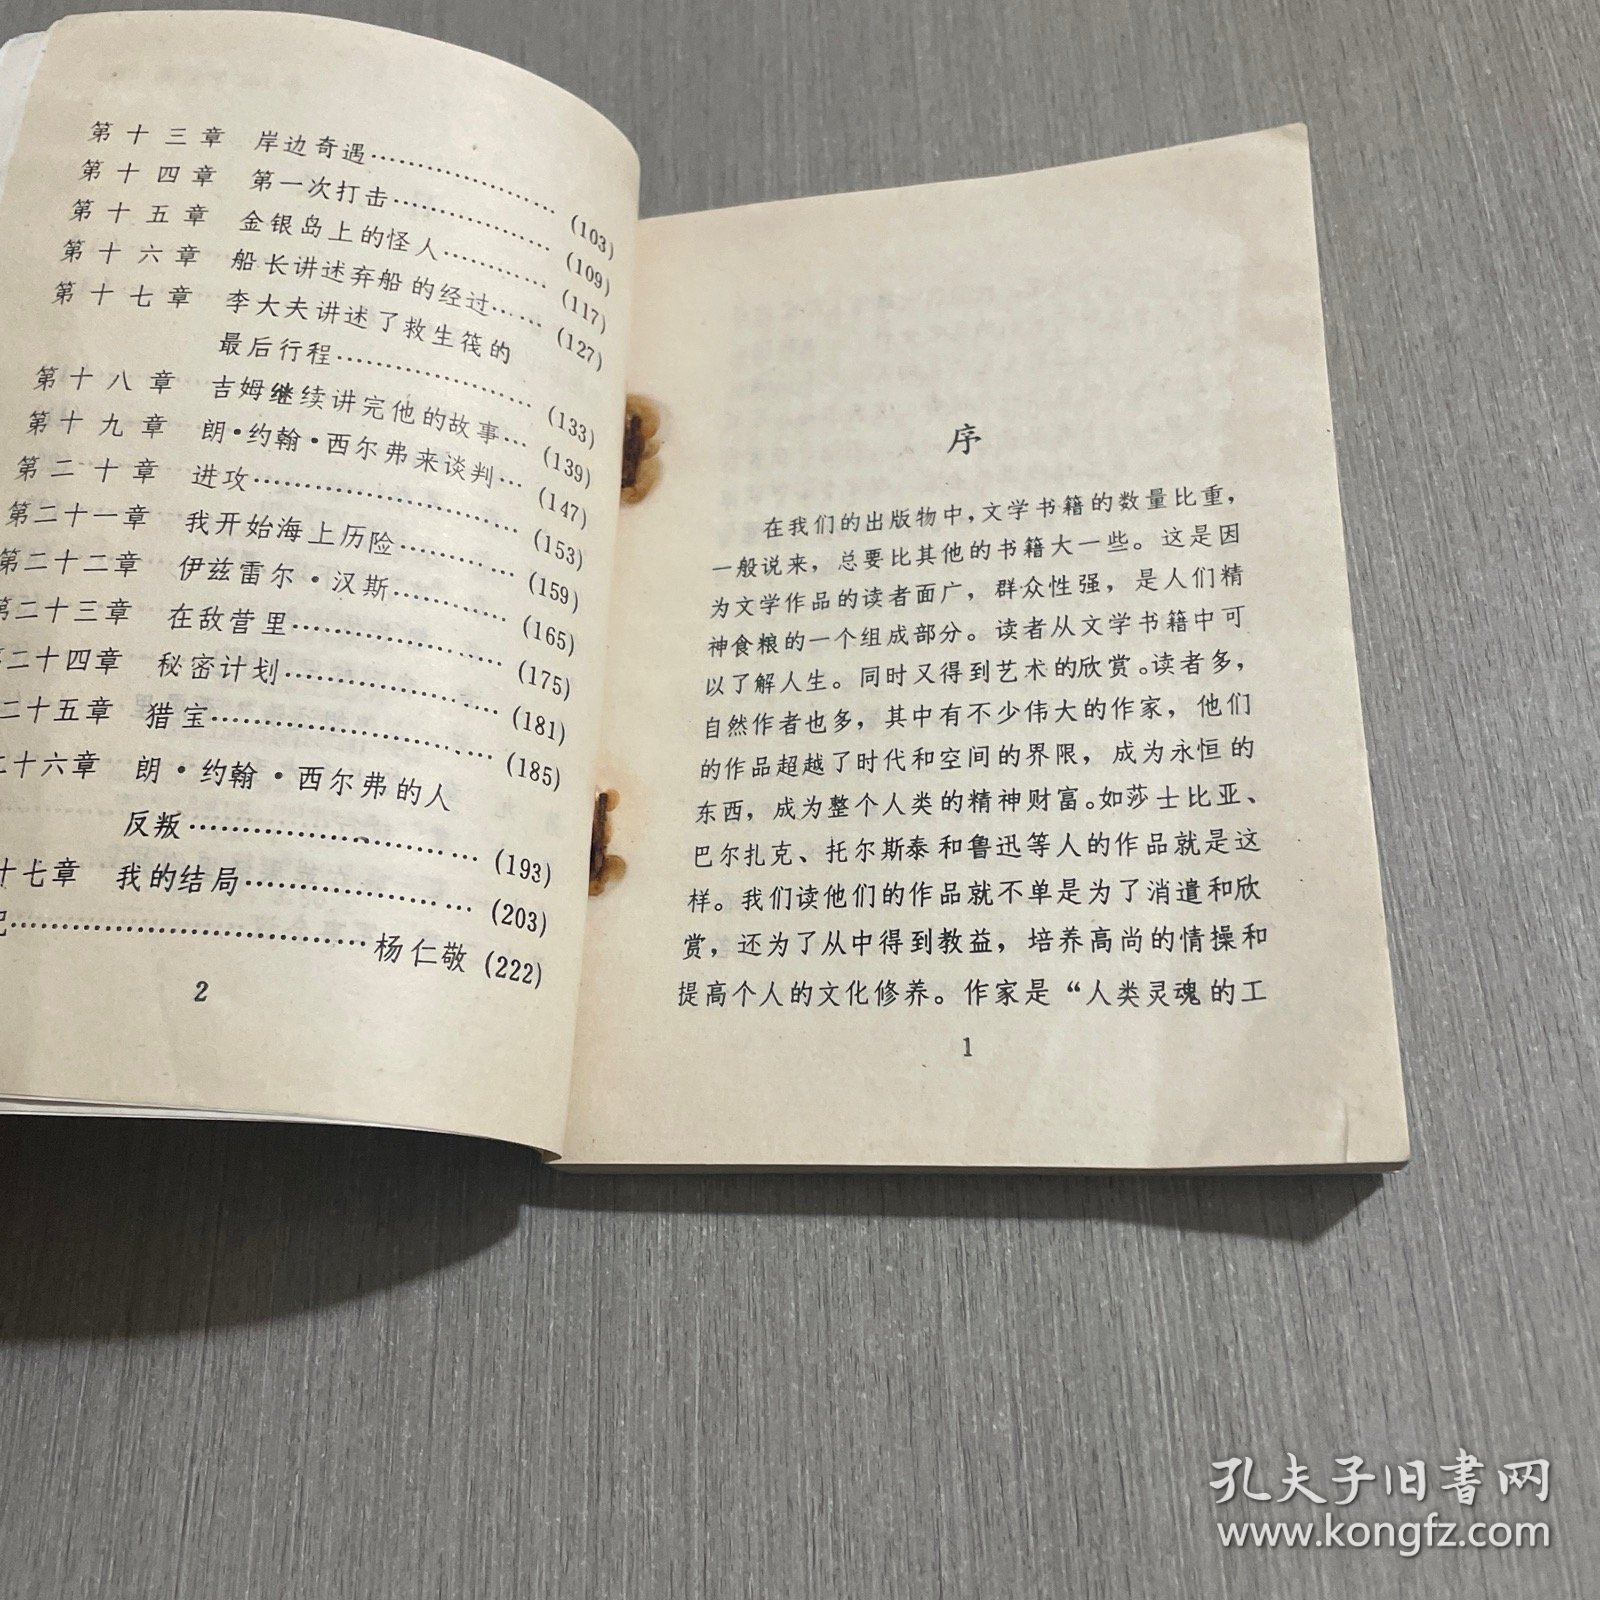 第十三章 岸边奇遇……………………(103)
第十四章 第一次打击…………………(109)
第十五章 金银岛上的怪人……………(117)
第十六章 船长讲述弃船的经过………(127)
第十七章 李大夫讲述了救生筏的
最后行程……………………(133)
第十八章 吉姆继续讲完他的故事……(139)
第十九章 朗·约翰·西尔弗来谈判…(147)
第二十章 进攻…………………………(153)
第二十一章 我开始海上历险…………(159)
第二十二章 伊兹雷尔·汉斯…………(165)
第二十三章 在敌营里…………………(175)
二十四章 秘密计划……………………(181)
二十五章 猎宝…………………………(185)
十六章 朗·约翰·西尔弗的人
反叛…………………………(193)
十七章 我的结局………………………(203)
记……………………………杨仁敬(222)
2
序
在我们的出版物中，文学书籍的数量比重，
一般说来，总要比其他的书籍大一些。这是因
为文学作品的读者面广，群众性强，是人们精
神食粮的一个组成部分。读者从文学书籍中可
以了解人生。同时又得到艺术的欣赏。读者多，
自然作者也多，其中有不少伟大的作家，他们
的作品超越了时代和空间的界限，成为永恒的
东西，成为整个人类的精神财富。如莎士比亚、
巴尔扎克、托尔斯泰和鲁迅等人的作品就是这
样。我们读他们的作品就不单是为了消遣和欣
赏，还为了从中得到教益，培养高尚的情操和
提高个人的文化修养。作家是“人类灵魂的工
1
孔夫子旧书网
www.kongfz.com